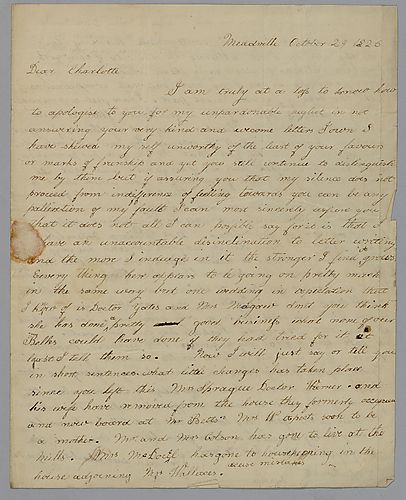 Meadville October 29 1826
Dear Charlotte
I am truly at a loss to know how
to apologise to you for my unpardonable neglect in not
answering your very kind and wecome letter I own I
have shewed my self unworthy of the least of your favours
or marks of frienship and yet you still continue to distinguish
me by them but if assuring you that my silence does not
proceed from indifference of feeling towards you can be any
palliation of my fault I can most sincerely assure you
that it does not all I can posible say for it is that I
have an unaccountable disinclination to letter writing
and the more I indulge in it the stronger I find it grows
Every thing here appears to be going on pretty much
in the same way but one wedding in expectation that
I know of is Doctor Yates and Mrs Magrew dont you think
she has done a pretty good buisness what none of our
Belles could have done if they had tried for it at
least I tell them so. Now I will just say or tell you
in short sentences what little changes has taken place
since you left this Mrs Sprague Doctor Werner and
his wife have removed from the house they formerly occupied
and now board at Mr Betts Mrs W expects soon to be
a mother. Mr and Mrs Colson has gone to live at the
mills. Mrs has gone to housekeeping in the
house adjoining Mr Wallaces. excuse mistakes